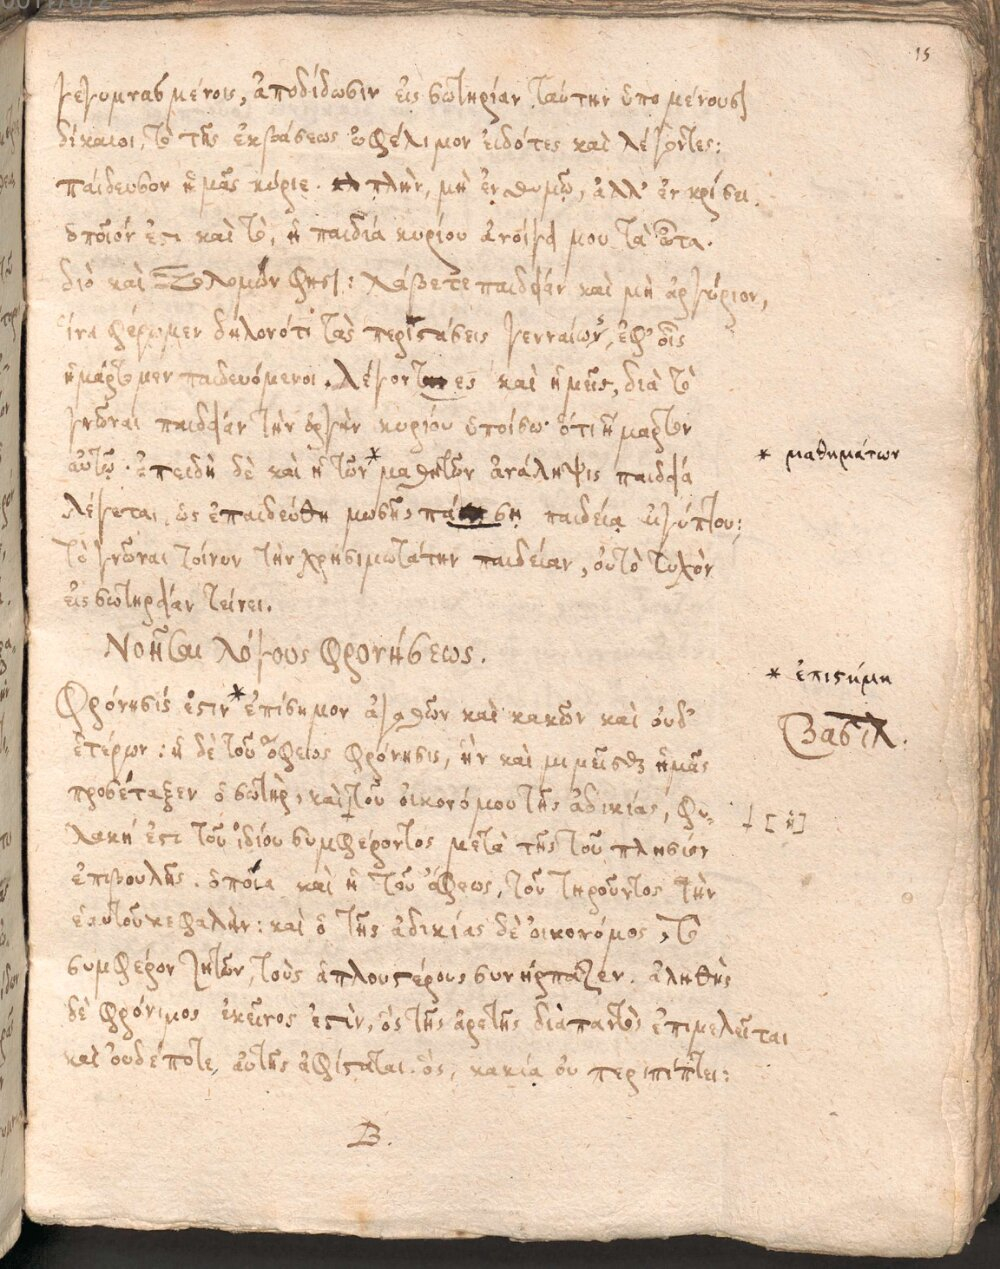 15
γεγυμνασμένοις, ἀποδίδωσιν εἰς σωτηρίαν ταύτην ὑπομένουσι
δίκαιοι, τὸ τῆς ἐκβάσεως ὠφέλιμον εἰδότες καὶ λέγοντες:
παίδευσον ἡμᾶς κύριε. πλὴν, μὴ ἐν θυμῷ, ἀλλ' ἐν κρίσει.
ὁποῖόν ἐστι καὶ τὸ, ἡ παιδία κυρίου ἀνοίγει μου τὰ ὦτα.
διὸ καὶ Σολομών φησι: λάβετε παιδείαν καὶ μὴ ἀργύριον,
ἵνα φέρωμεν δηλονότι τὰς περιστάσεις γενναίως, ἐφ' οἷς
ἡμάρτομεν παιδευόμενοι. λέγοντες καὶ ἡμεῖς, διὰ τὸ
γνῶναι παιδείαν τὴν ὀργὴν κυρίου ὑποίσω ὅτι ἥμαρτον
αὐτῷ. ἐπειδὴ δὲ καὶ ἡ τῶν * μαθητῶν ἀνάληψις παιδεία
* μαθημάτων
λέγεται, ὡς ἐπαιδεύθη μωσῆς πάσῃ παιδείᾳ αἰγύπτου:
τὸ γνῶναι τοίνυν τὴν χρησιμωτάτην παιδείαν, οὐ τὸ τυχὸν
εἰς σωτηρίαν τείνει.
Νοῆσαι λόγους φρονήσεως.
* ἐπιστήμη
Φρόνησίς ἐστιν * ἐπίσημον ἀγαθῶν καὶ κακῶν καὶ οὐδ'
Βασιλ.
ἑτέρων: ἡ δὲ τοῦ ὄφεως φρόνησις, ἣν καὶ μιμεῖσθαι ἡμᾶς
προσέταξεν ὁ σωτὴρ, καὶ ϯ τοῦ οἰκονόμου τῆς ἀδικίας, φυ-
ϯ [ἡ]
λακή ἐστι τοῦ ἰδίου συμφέροντος μετὰ τῆς τοῦ πλησίον
ἐπιβουλῆς. ὁποία καὶ ἡ τοῦ ὄφεως, τοῦ τηροῦντος τὴν
ἑαυτοῦ κεφαλήν: καὶ ὁ τῆς ἀδικίας δὲ οἰκονόμος, τὸ
συμφέρον ζητῶν, τοὺς ἁπλουστέρους συνήρπαζεν. ἀληθὴς
δὲ φρόνιμος ἐκεῖνος ἐστὶν, ὃς τῆς ἀρετῆς διαπαντὸς ἐπιμελεῖται
καὶ οὐδέποτε αὐτῆς ἀφίσταται. ὃς, κακίᾳ οὐ περιπίπτει:
B.